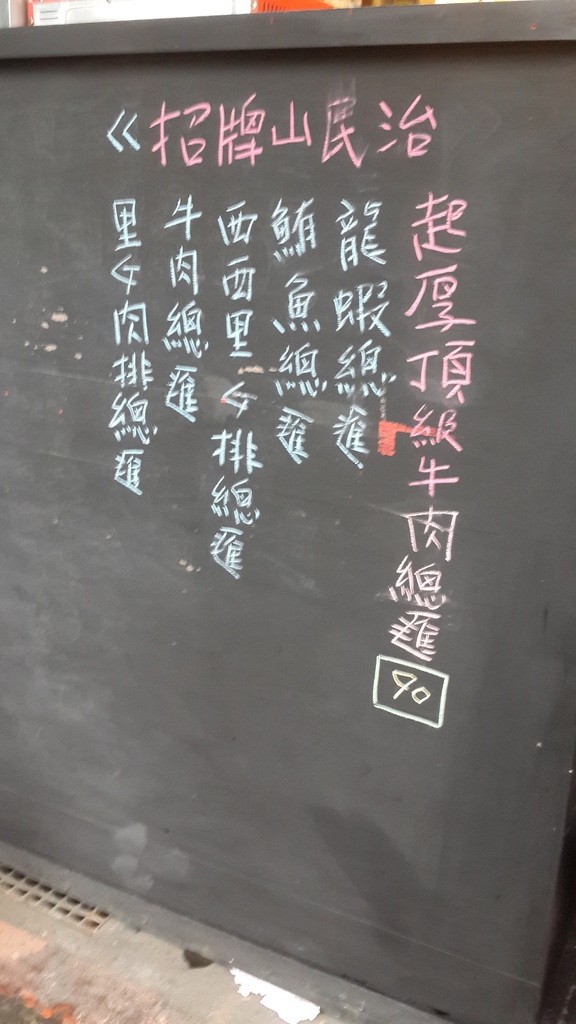 《招牌山民治
起厚頂級牛肉總匯 90
龍蝦總匯
鮪魚總匯
西西里々排總匯
牛肉總匯
里々肉排總匯